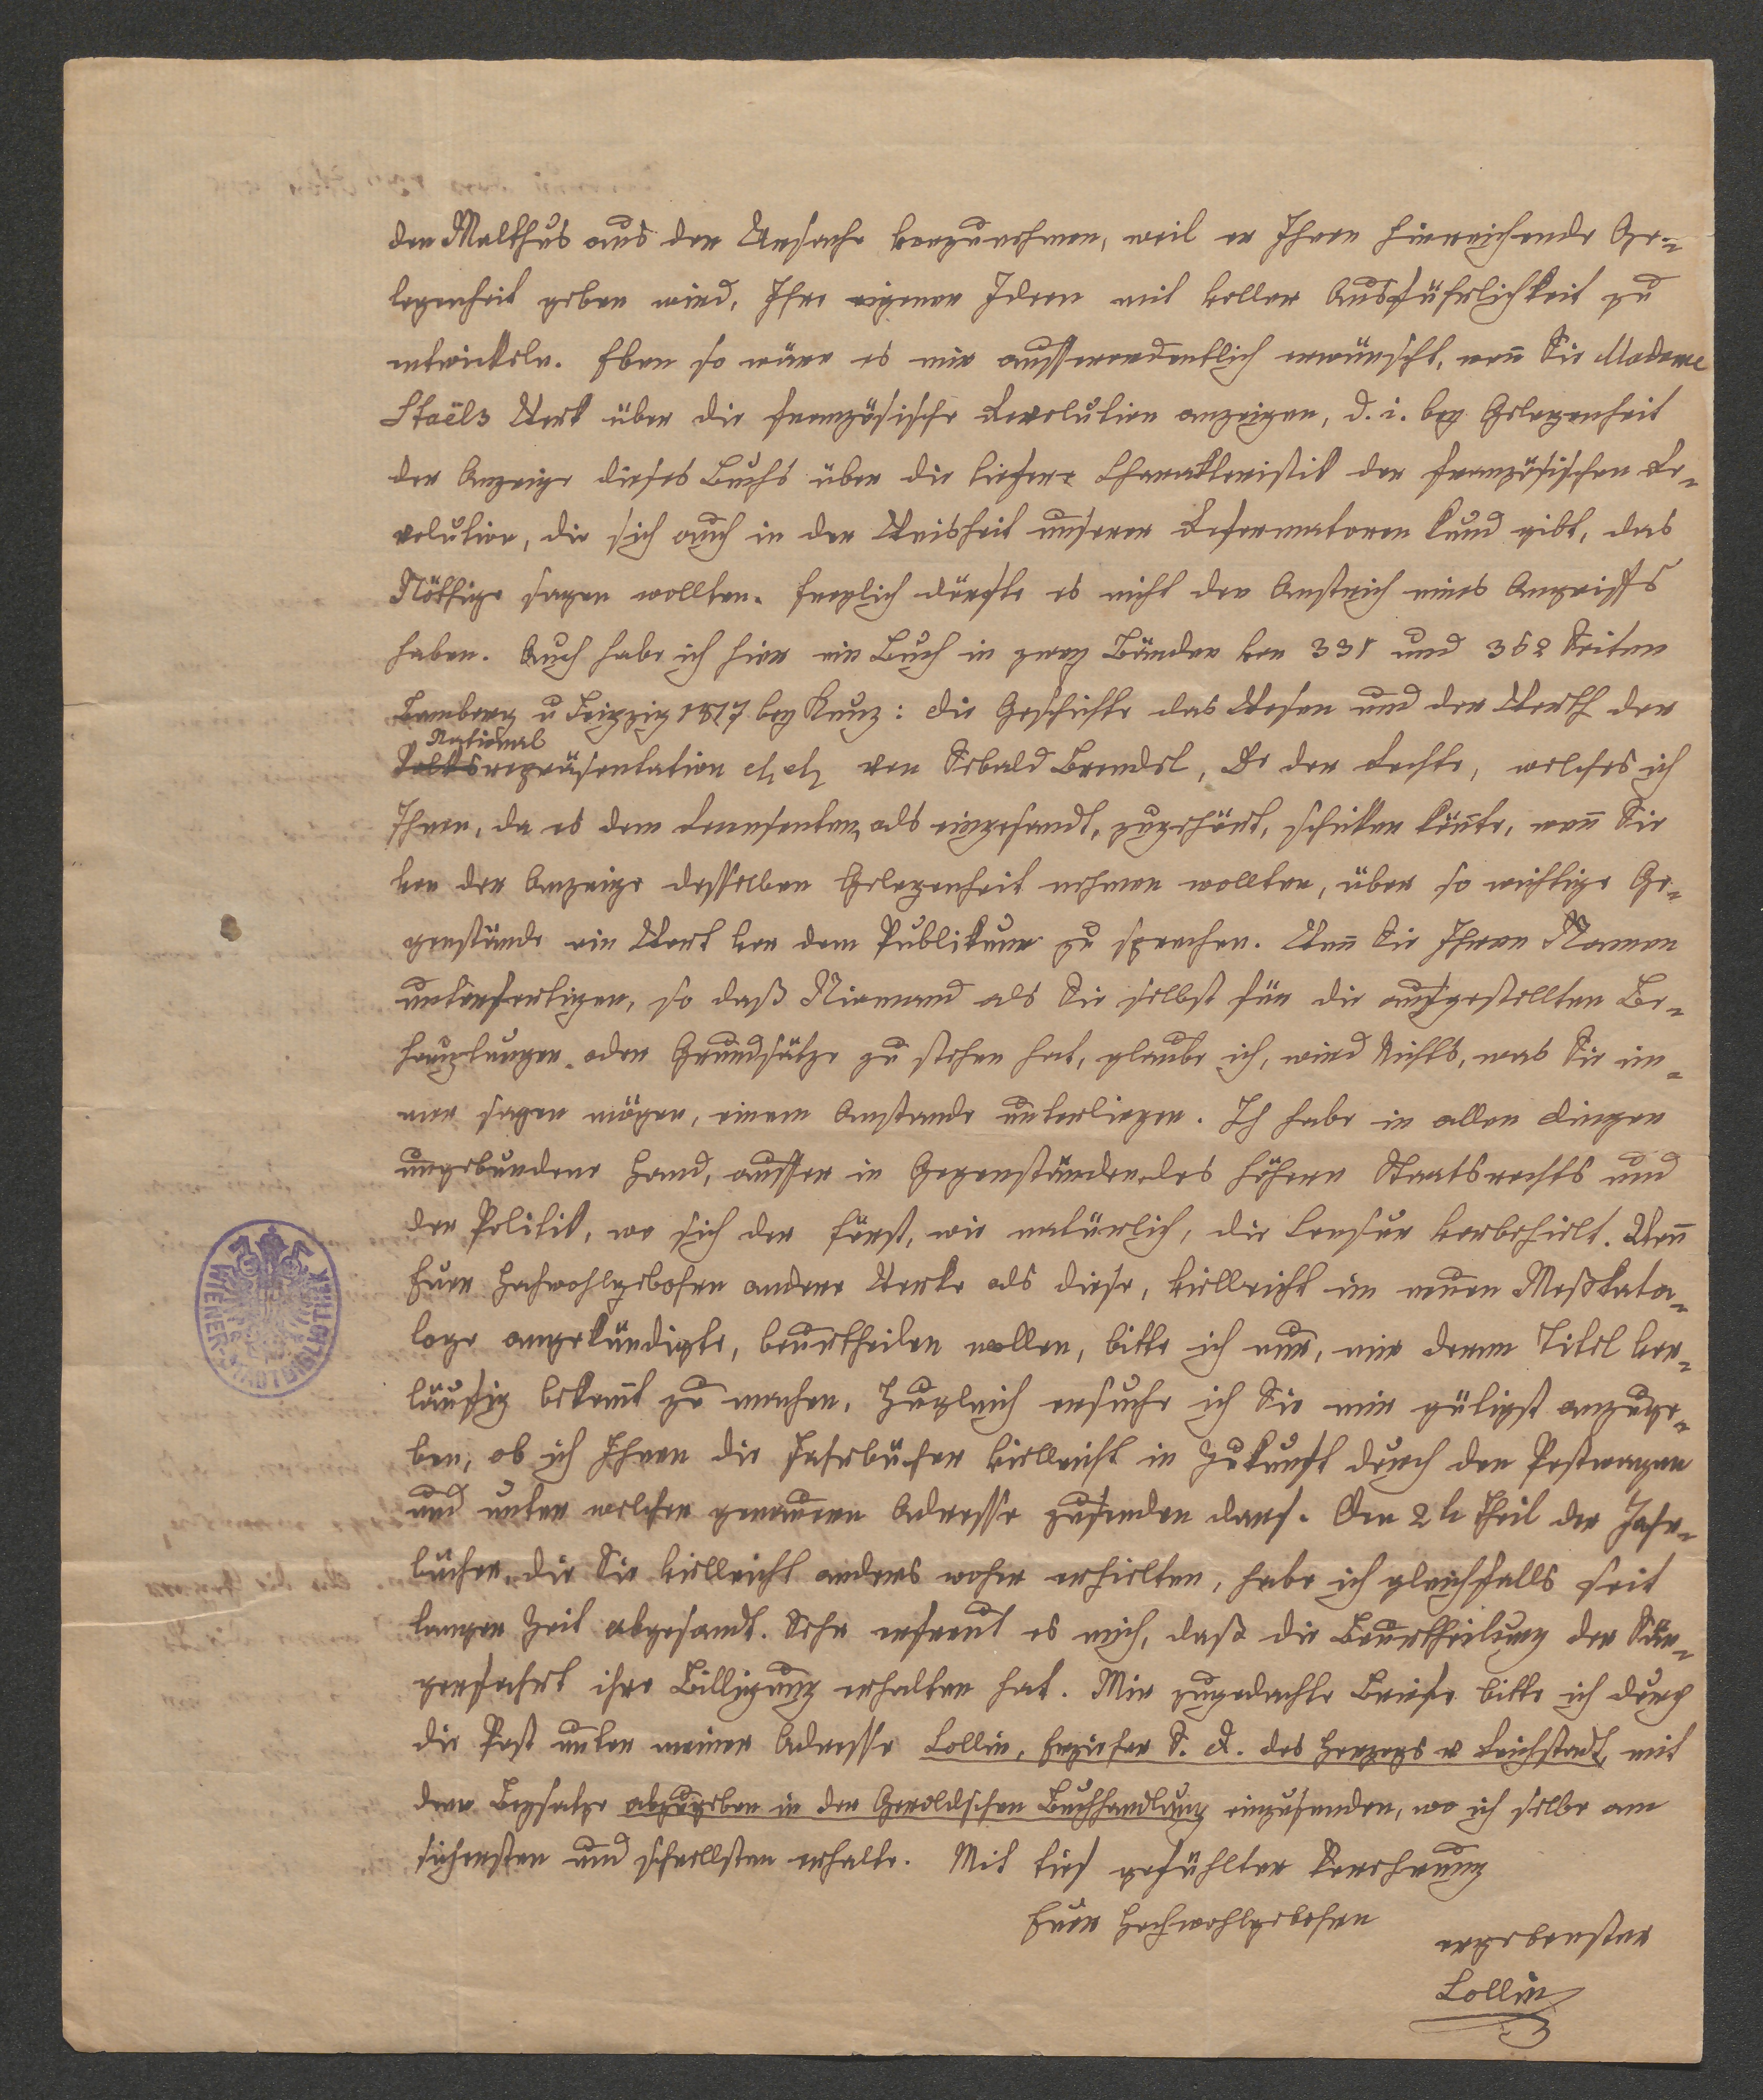 den Malthus aus der Ursache vorzunehmen, weil er Ihnen hinreichende Ge-
legenheit geben wird, Ihre eigenen Ideen mit voller Ausführlichkeit zu
entwickeln. Eben so wäre es mir ausserordentlich erwünscht, wen̄ Sie Madame
Staëls Werk über die französische Revolution anzeigen, d. i. bey Gelegenheit
der Anzeige dieses Buchs über die tiefere Charakteristik der französischen Re-
volution, die sich auch in der Weisheit unserer Reformatoren kund gibt, das
Nöthige sagen wollten. Freylich dürfte es nicht den Anstrich eines Angriffs
haben. Auch habe ich hier ein Buch in zwey Bänden von 331 und 352 Seiten
Bamberg u Leipzig 1817 bey Kunz: die Geschichte das Wesen und der Werth der
National
Volksrepräsentation etc etc von Sebald Brendel, Dr der Rechte, welches ich
Ihnen, da es dem Recensenten, als eingesandt, zugehört, schicken kön̄te, wen̄ Sie
von der Anzeige desselben Gelegenheit nehmen wollten, über so wichtige Ge-
genstände ein Wort vor dem Publikum zu sprechen. Wen̄ Sie Ihren Namen
unterfertigen, so daß Niemand als Sie selbst für die aufgestellten Be-
hauptungen oder Grundsätze zu stehen hat, glaube ich, wird Nichts, was Sie im-
mer sagen mögen, einem Anstande unterliegen. Ich habe in allen Dingen
ungebundene Hand, ausser in Gegenständen des höhern Staatsrechts und
der Politik, wo sich der Fürst, wie natürlich, die Censur vorbehielt. Wen̄
Euer Hochwohlgebohren andere Werke als diese, vielleicht im neuen Meßkata-
loge angekündigte, beurtheilen wollen, bitte ich nur, mir deren Titel vor-
läufig bekan̄t zu machen. Zugleich ersuche ich Sie mir gütigst anzuge-
ben, ob ich Ihnen die Jahrbücher vielleicht in Zukunft durch den Postwagen
und unter welcher genauern Adresse zusenden darf. Den 2t Theil der Jahr-
bücher, die Sie vielleicht anders woher erhielten, habe ich gleichfalls seit
langer Zeit abgesandt. Sehr erfreut es mich, daß die Beurtheilung der Sän-
gerfahrt ihre Billigung erhalten hat. Mir zugedachte Briefe bitte ich durch
die Post unter meiner Adresse Collin, Erzieher S. D. des Herzogs v Reichstadt, mit
dem Beysatze abzugeben in der Geroldschen Buchhandlung einzusenden, wo ich selbe am
sichersten und schnellsten erhalte. Mit tief gefühlter Verehrung
Euer Hochwohlgebohren
ergebenster
Collin
WIENER STADTBIBLIOTHEK